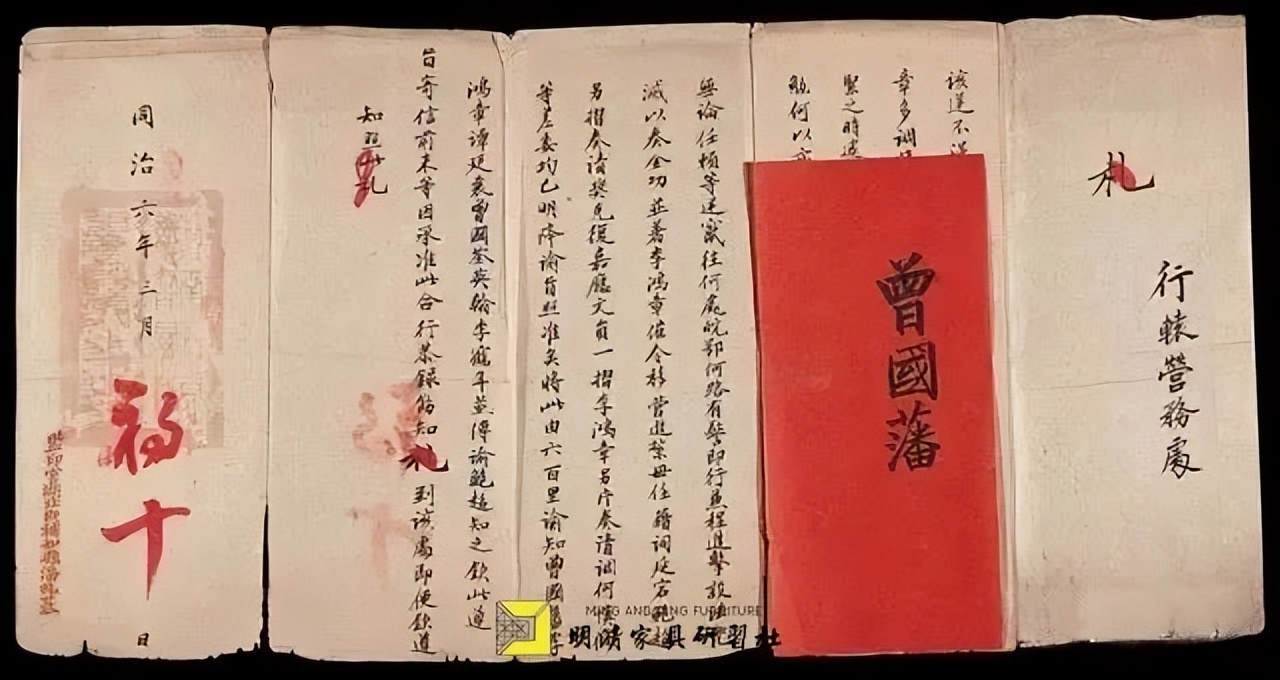 札
行轅營務處
曾國藩
該逆不
章多調
緊之時
勉何以
無論任賴等逆竄往何處皖鄂何路有警即行兼程進擊設法
滅以奏全功並著李鴻章催令移營進紮毋任藉詞延宕鮑超
另摺奏請獎克復嘉應文員一摺李鴻章另片奏請調何
等差委均已明降諭旨照准矣將此由六百里諭知曾國藩李
鴻章譚廷襄曾國荃英翰李鶴年並傳諭鮑超知之欽此遵
旨寄信前來等因承准此合行恭錄飭知札到該處即便欽遵
知照此札
同治六年三月初十日
監印官
MING AND QING FURNITURE
明清家具研習社